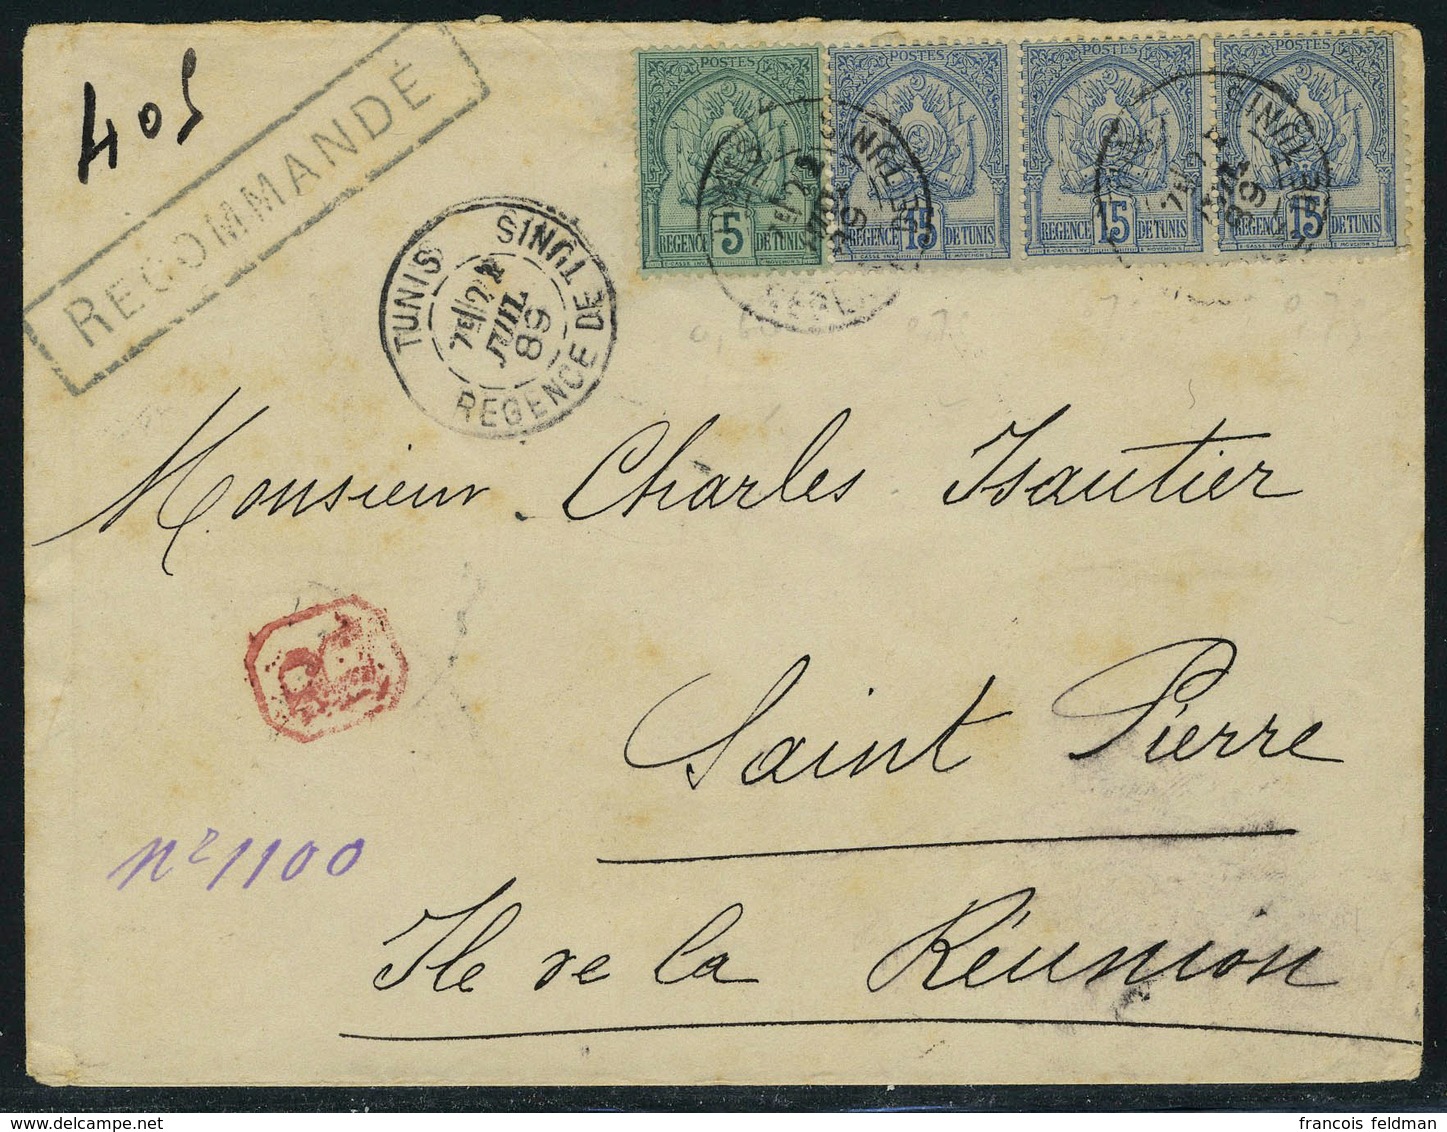 405
RECOMMANDÉ
POSTES POSTES POSTES POSTES
5 15 15 15
REGENCE DE TUNIS REGENCE DE TUNIS REGENCE DE TUNIS REGENCE DE TUNIS
TUNIS
7E/
JUIL
89
REGENCE DE TUNIS
Monsieur Charles Isautier
R
Saint Pierre
No 1100
Ile de la Réunion
francois feldman